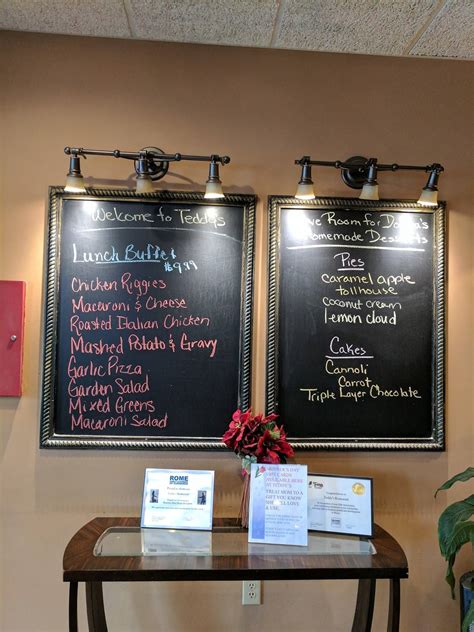 Welcome to Teddy's
Lunch Buffet
$9.99
Chicken Riggies
Macaroni & Cheese
Roasted Italian Chicken
Mashed Potato & Gravy
Garlic Pizza
Garden Salad
Mixed Greens
Macaroni Salad
Room for
Homemade Desserts
Pies
caramel apple
tollhouse
coconut cream
lemon cloud
Cakes
Cannoli
Carrot
Triple Layer Chocolate
ROME
MOTHER'S DAY
GIFT CARDS
AVAILABLE HERE
AT TEDDY'S
TREAT MOM TO A
GIFT YOU KNOW
LOVE
& USE.